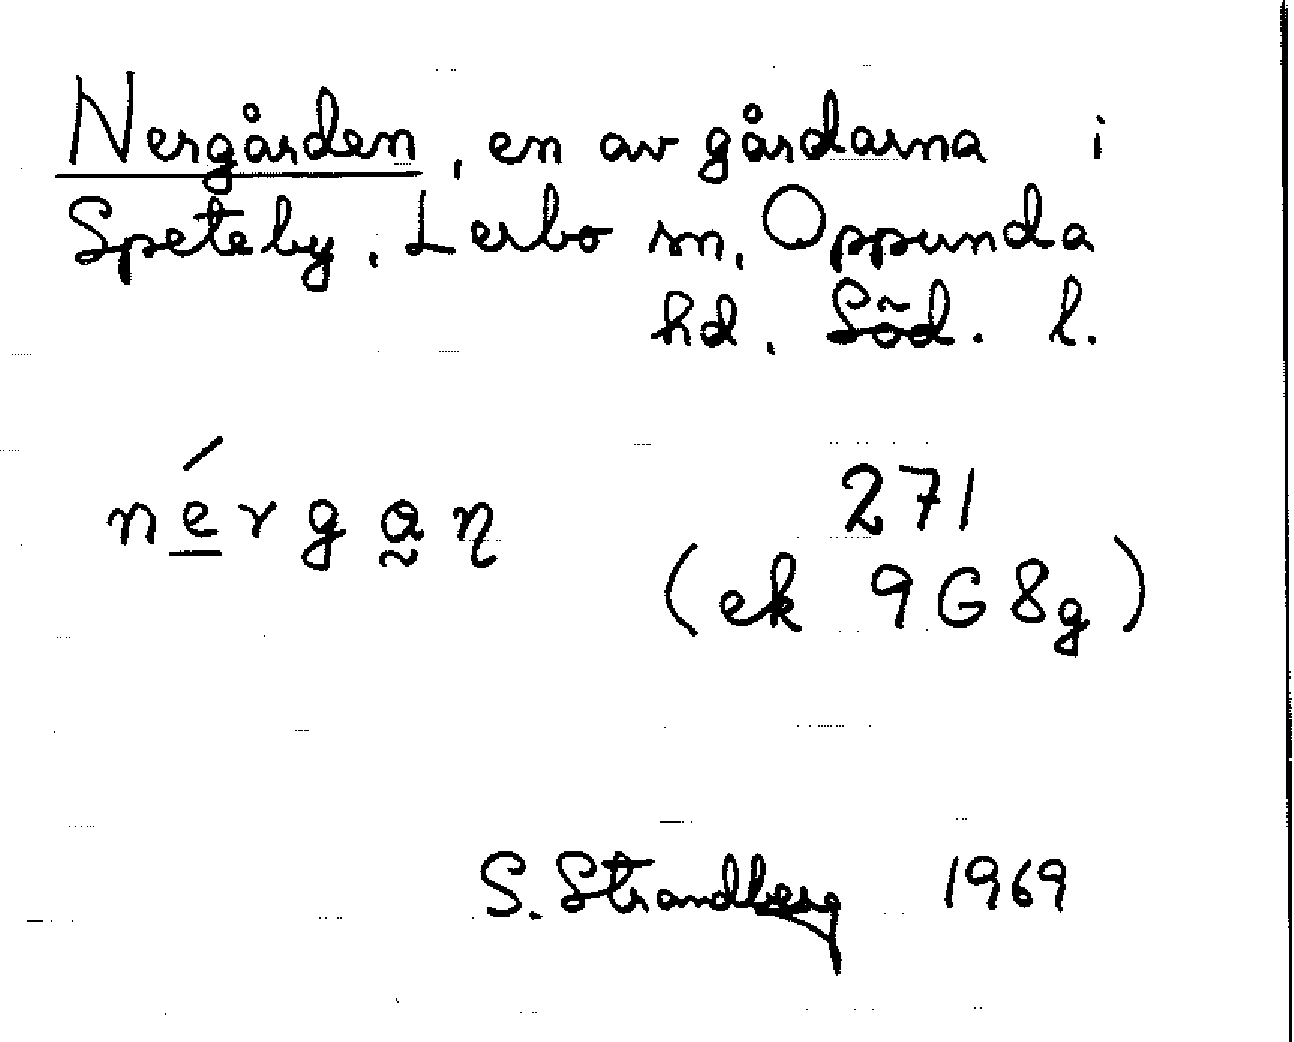 Nergården, en av gårdarna i
Speteby, Lerbo sn, Oppunda
hd, Söd. l.
nérgan 271
(ek 9G8g)
S. Strandberg 1969